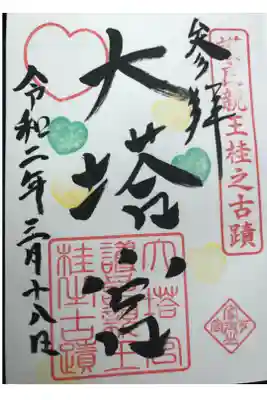 護良親王桂之古蹟
参拝
大塔宮
令和二年三月十八日
大塔宮
護良親王
桂之古蹟